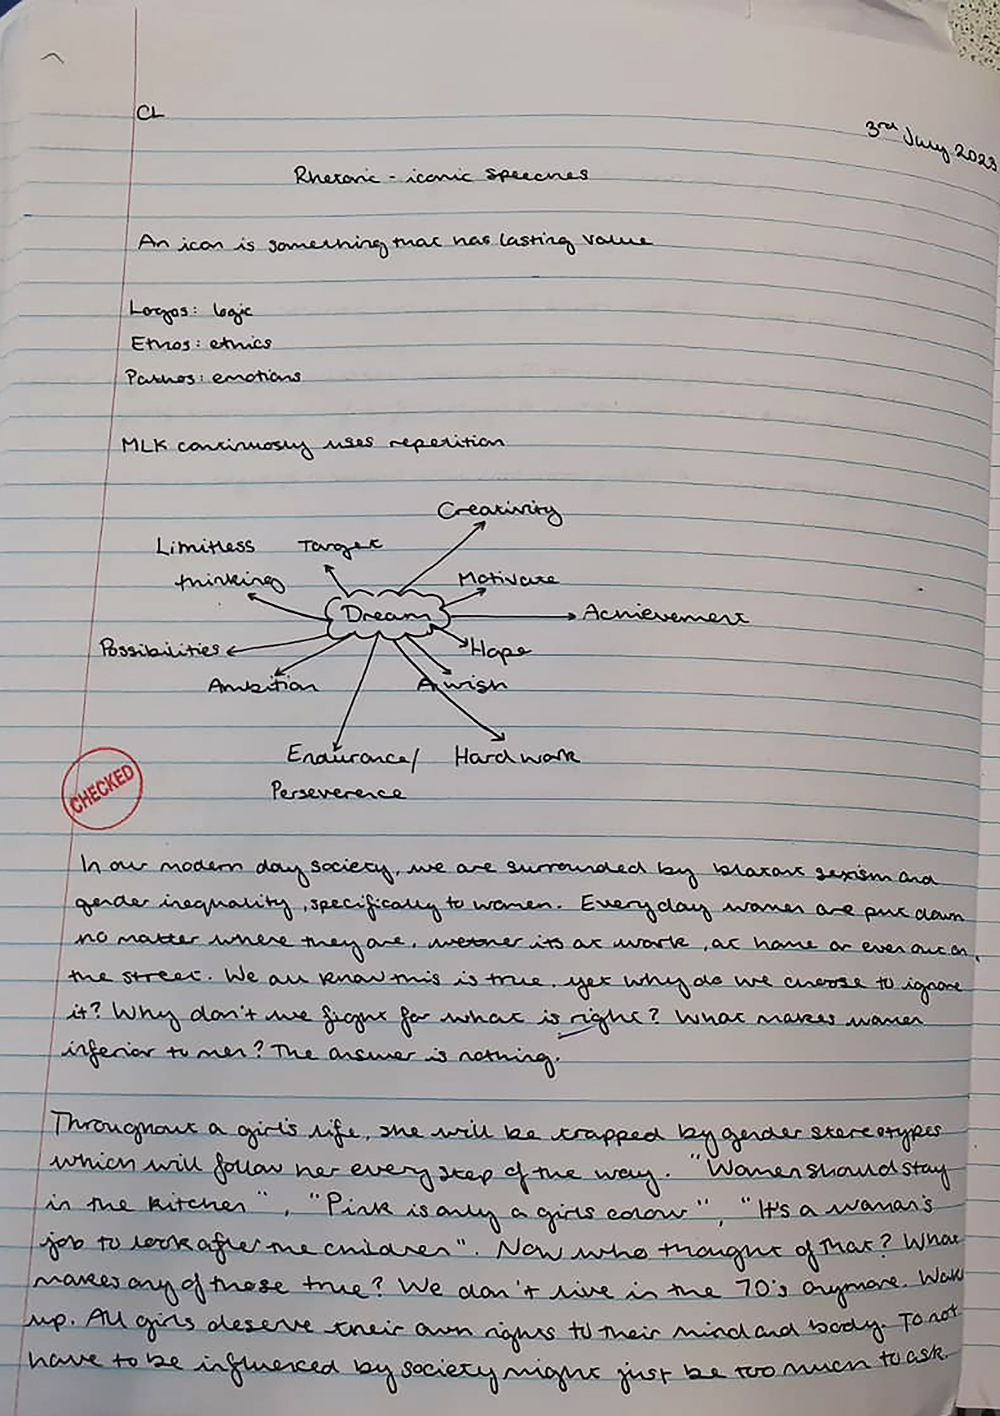 CL
3rd July 2023
Rhetoric - iconic speeches
An icon is something that has lasting value
Logos: logic
Ethos: ethics
Pathos: emotions
MLK continuosly uses repetition
Creativity
Limitless Target
thinking Motivate
Dream Achievement
Possibilities Hope
Ambition A wish
Endurance/ Hard work
Perseverence
CHECKED
In our modern day society, we are surrounded by blatant sexism and
gender inequality, specifically to women. Everyday women are put down
no matter where they are, wether its at work, at home or even out on
the street. We all know this is true, yet why do we choose to ignore
it? Why don't we fight for what is right? What makes women
inferior to men? The answer is nothing.
Throughout a girl's life, she will be trapped by gender stereotypes
which will follow her every step of the way. "Women should stay
in the kitchen", "Pink is only a girls colour", "It's a woman's
job to look after the children". Now who thought of that? What
makes any of those true? We don't live in the 70's anymore. Wake
up. All girls deserve their own rights to their mind and body. To not
have to be influenced by society might just be too much to ask.